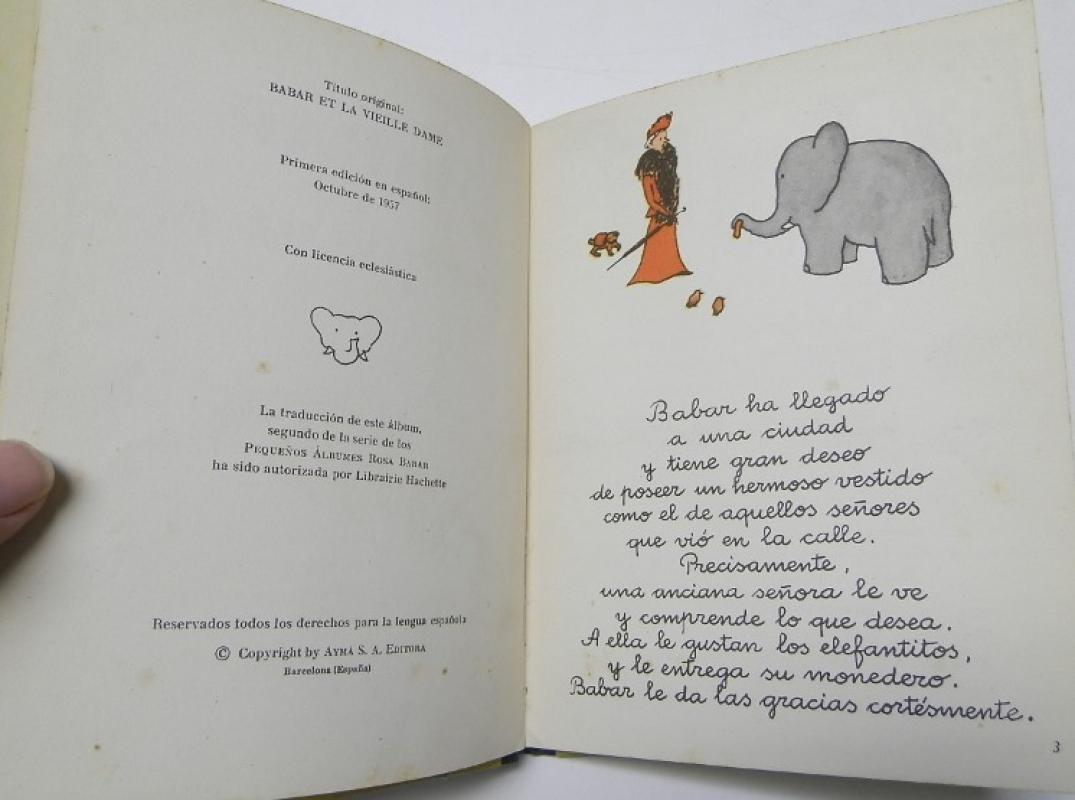 Título original:
BABAR ET LA VIEILLE DAME
Primera edición en español:
Octubre de 1957
Con licencia eclesiástica
La traducción de este álbum,
segundo de la serie de los
PEQUEÑOS ÁLBUMES ROSA BABAR
ha sido autorizada por Librairie Hachette
Reservados todos los derechos para la lengua española
© Copyright by AYMÁ S. A. EDITORA
Barcelona (España)
Babar ha llegado
a una ciudad
y tiene gran deseo
de poseer un hermoso vestido
como el de aquellos señores
que vió en la calle.
Precisamente,
una anciana señora le ve
y comprende lo que desea.
A ella le gustan los elefantitos,
y le entrega su monedero.
Babar le da las gracias cortésmente.
3